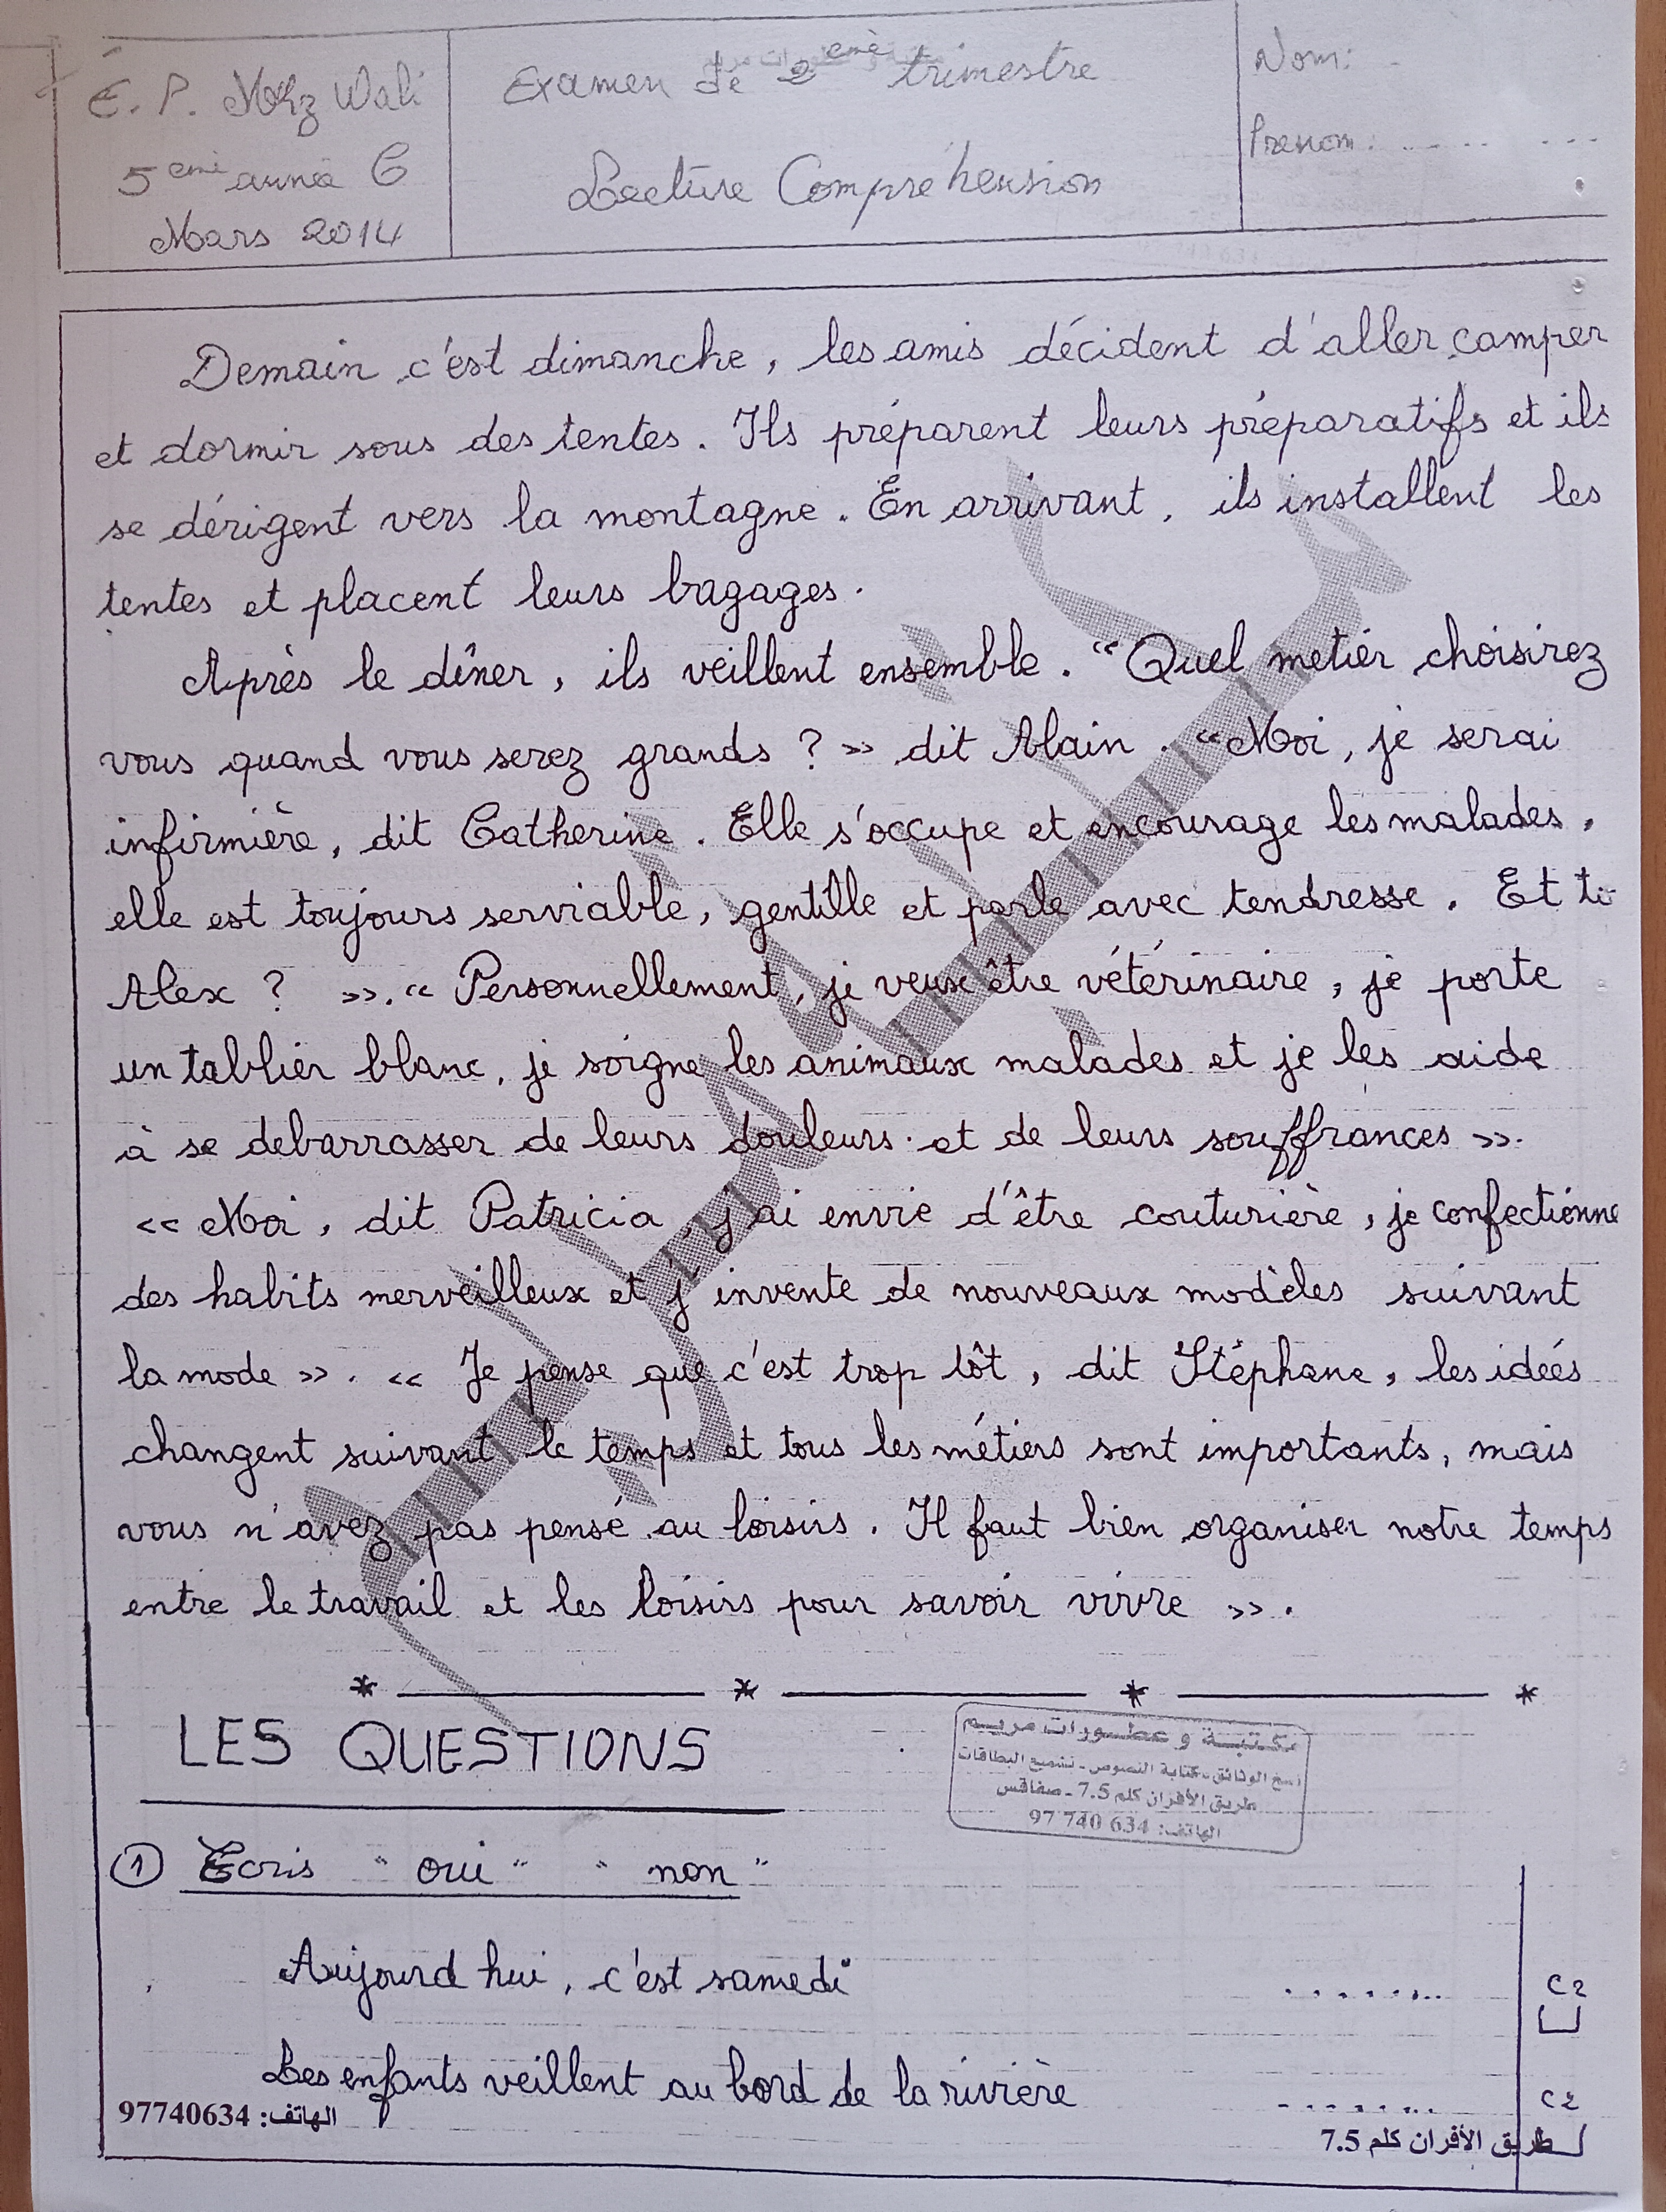 É. P. Mrz Wali
5ème année C
Mars 2014
Examen de 2ème trimestre
Lecture Compréhension
Nom:
Prenom: ... ...
Demain c'est dimanche, les amis décident d'aller camper
et dormir sous des tentes. Ils préparent leurs préparatifs et ils
se dérigent vers la montagne. En arrivant, ils installent les
tentes et placent leurs bagages.
Après le dîner, ils veillent ensemble. "Quel metier choisirez
vous quand vous serez grands ? » dit Alain. "Moi, je serai
infirmière, dit Catherine. Elle s'occupe et encourage les malades,
elle est toujours serviable, gentille et parle avec tendresse. Et
Alex ? ». " Personnellement, je veux être vétérinaire, je porte
un tablier blanc, je soigne les animaux malades et je les aide
à se debarrasser de leurs douleurs et de leurs souffrances ».
<< Moi, dit Patricia, j'ai envie d'être couturière, je confectionne
des habits merveilleux et j'invente de nouveaux modèles suivant
la mode >>. << Je pense que c'est trop tôt, dit Stéphane, les ideés
changent suivant le temps et tous les métiers sont importants, mais
vous n'avez pas pensé au loisirs. Il faut bien organiser notre temps
entre le travail et les loisirs pour savoir vivre >>.
LES QUESTIONS
مكتبة و عطورات مريم
نسخ الوثائق - كتابة النصوص - تشميع البطاقات
طريق الأفران كلم 7.5 - صفاقس
الهاتف: 634 740 97
① Ecris "oui" "non"
Aujourd hui, c'est samedi ........ C2
Les enfants veillent au bord de la rivière ........ C2
الهاتف: 97740634
طريق الأفران كلم 7.5